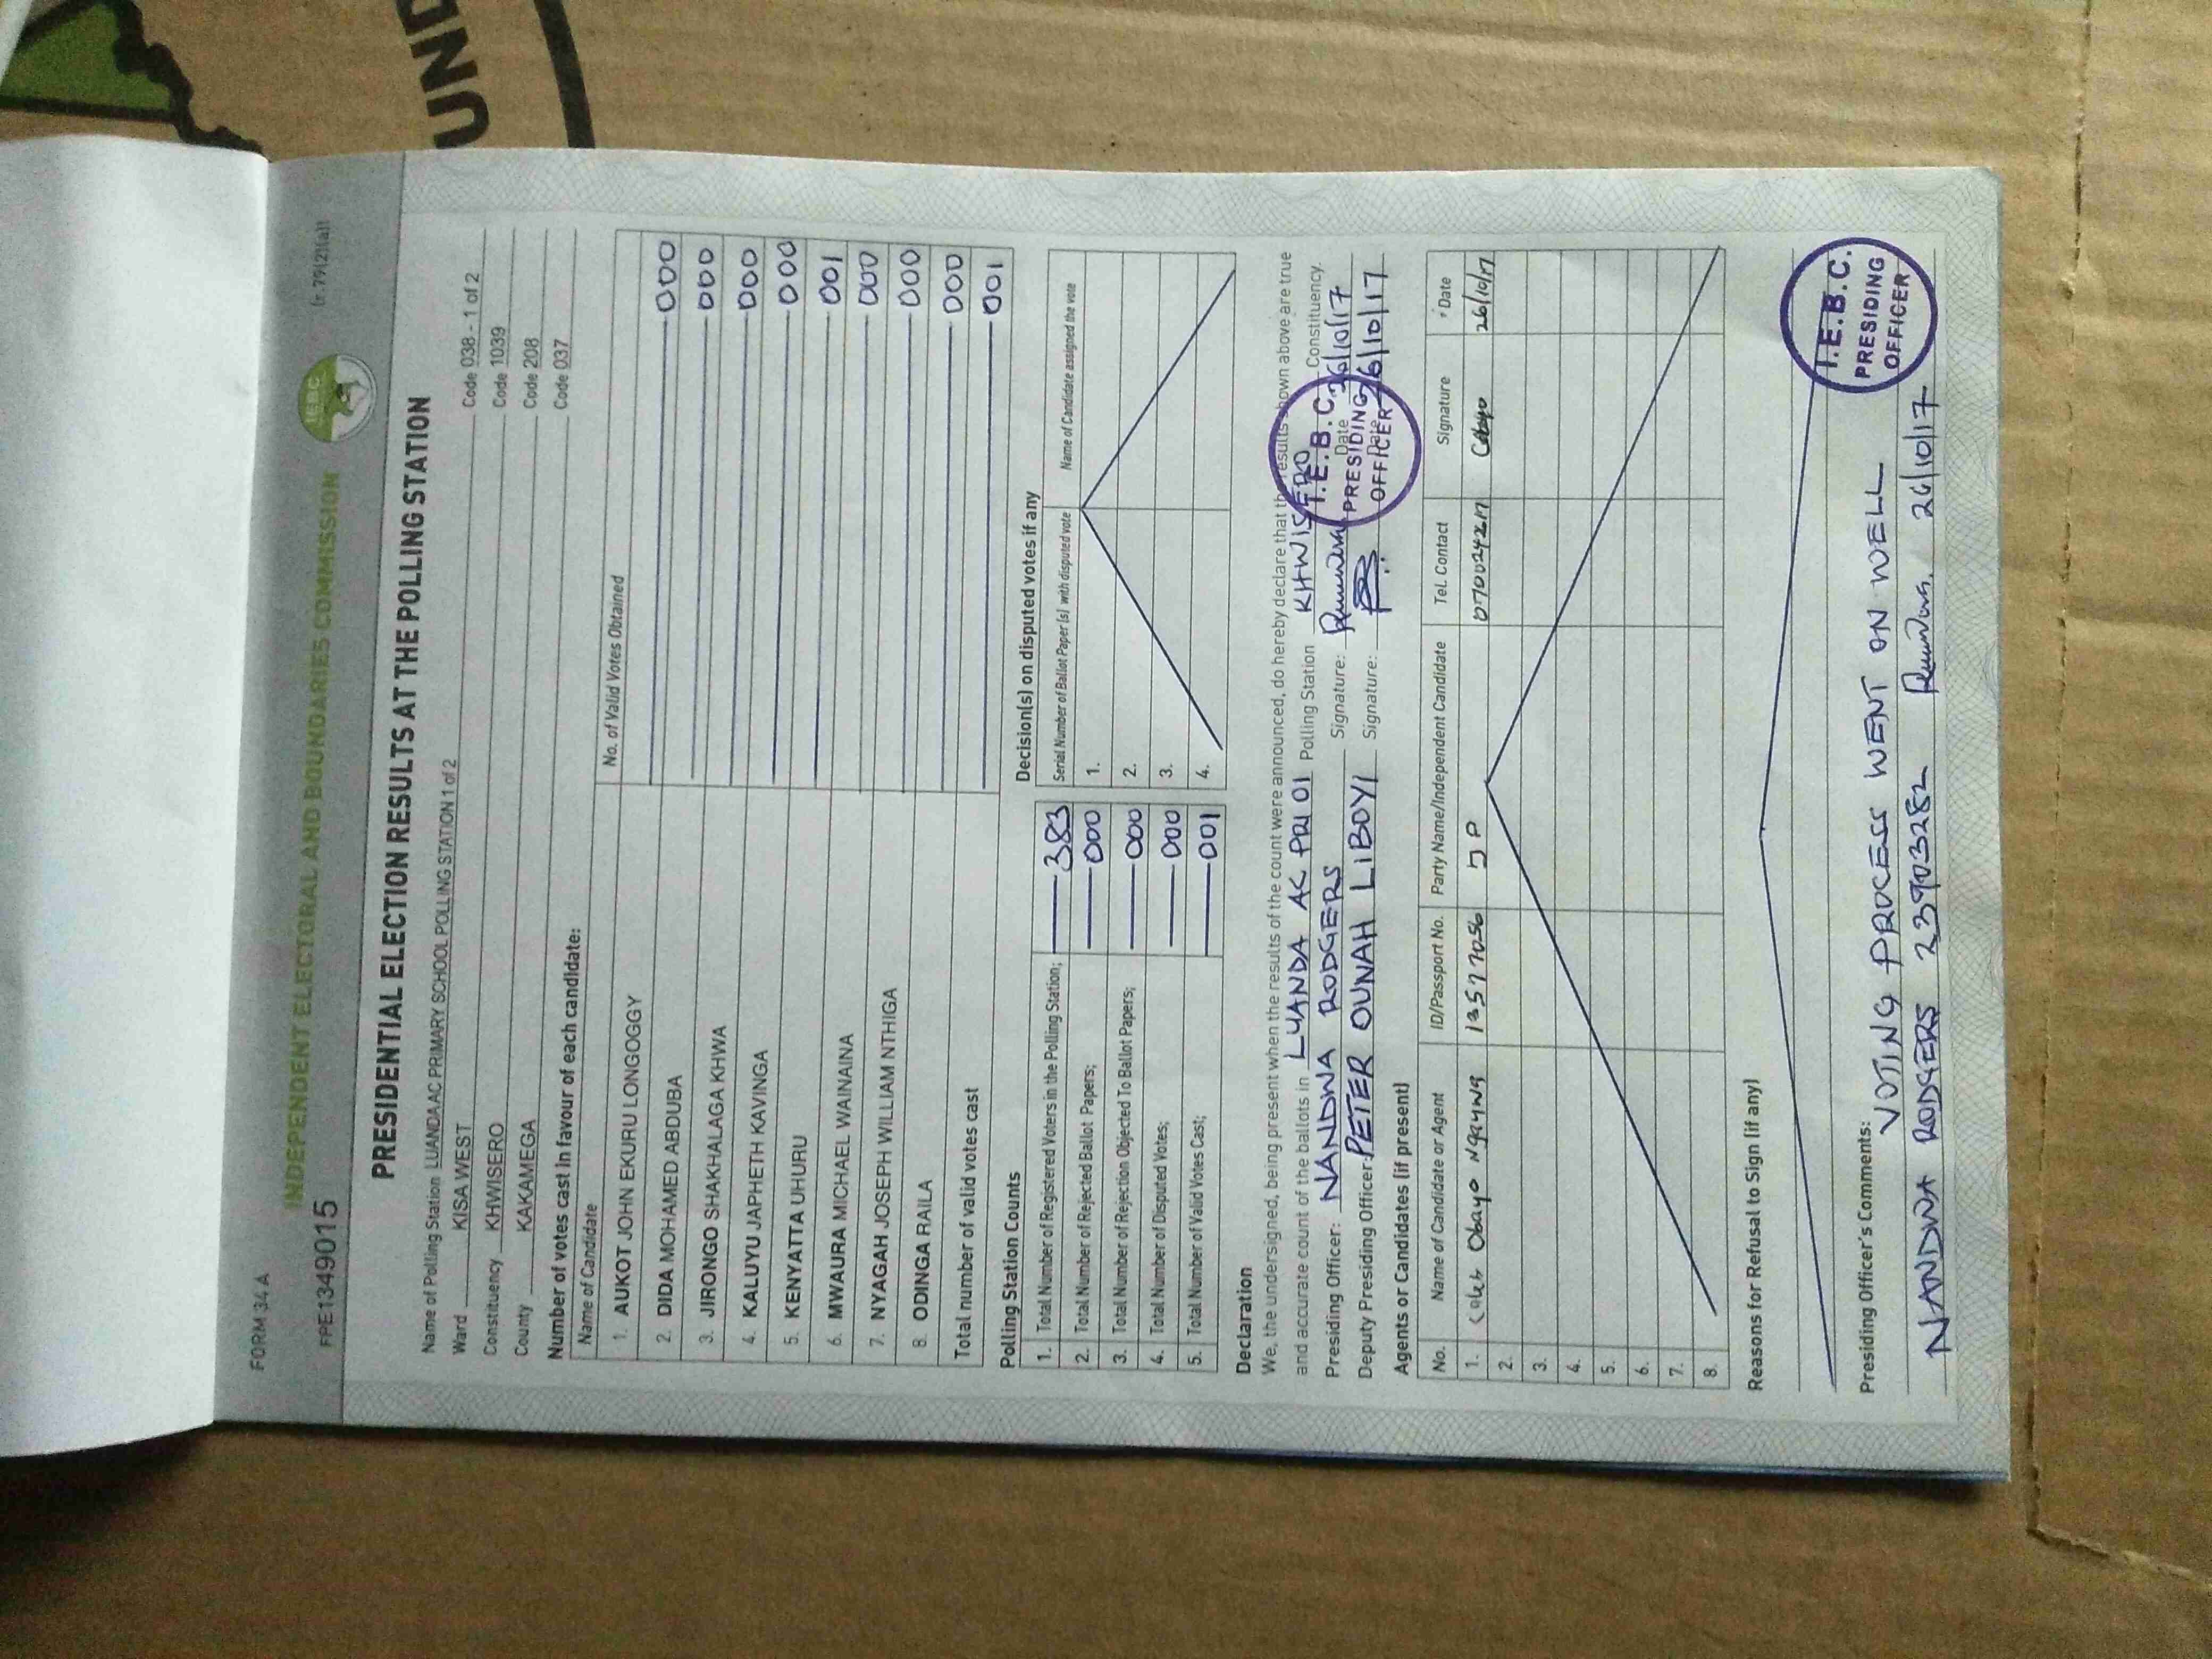 UND
FORM 34A
(r. 79(2)(a))
INDEPENDENT ELECTORAL AND BOUNDARIES COMMISSION
IEBC
FPE1349015
PRESIDENTIAL ELECTION RESULTS AT THE POLLING STATION
Name of Polling Station LUANDA AC PRIMARY SCHOOL POLLING STATION 1 of 2 Code 038 - 1 of 2
Ward KISA WEST Code 1039
Constituency KHWISERO Code 208
County KAKAMEGA Code 037
Number of votes cast in favour of each candidate:
Name of Candidate No. of Valid Votes Obtained
1. AUKOT JOHN EKURU LONGOGGY 000
2. DIDA MOHAMED ABDUBA 000
3. JIRONGO SHAKHALAGA KHWA 000
4. KALUYU JAPHETH KAVINGA 000
5. KENYATTA UHURU 001
6. MWAURA MICHAEL WAINAINA 000
7. NYAGAH JOSEPH WILLIAM NTHIGA 000
8. ODINGA RAILA 000
Total number of valid votes cast 001
Polling Station Counts Decision(s) on disputed votes if any
1. Total Number of Registered Voters in the Polling Station; 383 Serial Number of Ballot Paper (s) with disputed vote Name of Candidate assigned the vote
2. Total Number of Rejected Ballot Papers; 000 1.
3. Total Number of Rejection Objected To Ballot Papers; 000 2.
4. Total Number of Disputed Votes; 000 3.
5. Total Number of Valid Votes Cast; 001 4.
Declaration
We, the undersigned, being present when the results of the count were announced, do hereby declare that the results shown above are true
and accurate count of the ballots in LUANDA AC PRI 01 Polling Station KHWISERO Constituency.
Presiding Officer: NANDWA RODGERS Signature: Date 26/10/17
Deputy Presiding Officer: PETER OUNAH LIBOYI Signature: Date 26/10/17
I.E.B.C.
PRESIDING
OFFICER
Agents or Candidates (if present)
No. Name of Candidate or Agent ID/Passport No. Party Name/Independent Candidate Tel. Contact Signature Date
1. Caleb Obayo Ngaywa 13577056 JP 0700242217 26/10/17
2.
3.
4.
5.
6.
7.
8.
Reasons for Refusal to Sign (if any)
Presiding Officer's Comments:
VOTING PROCESS WENT ON WELL
NANDWA RODGERS 23903282 26/10/17
I.E.B.C.
PRESIDING
OFFICER